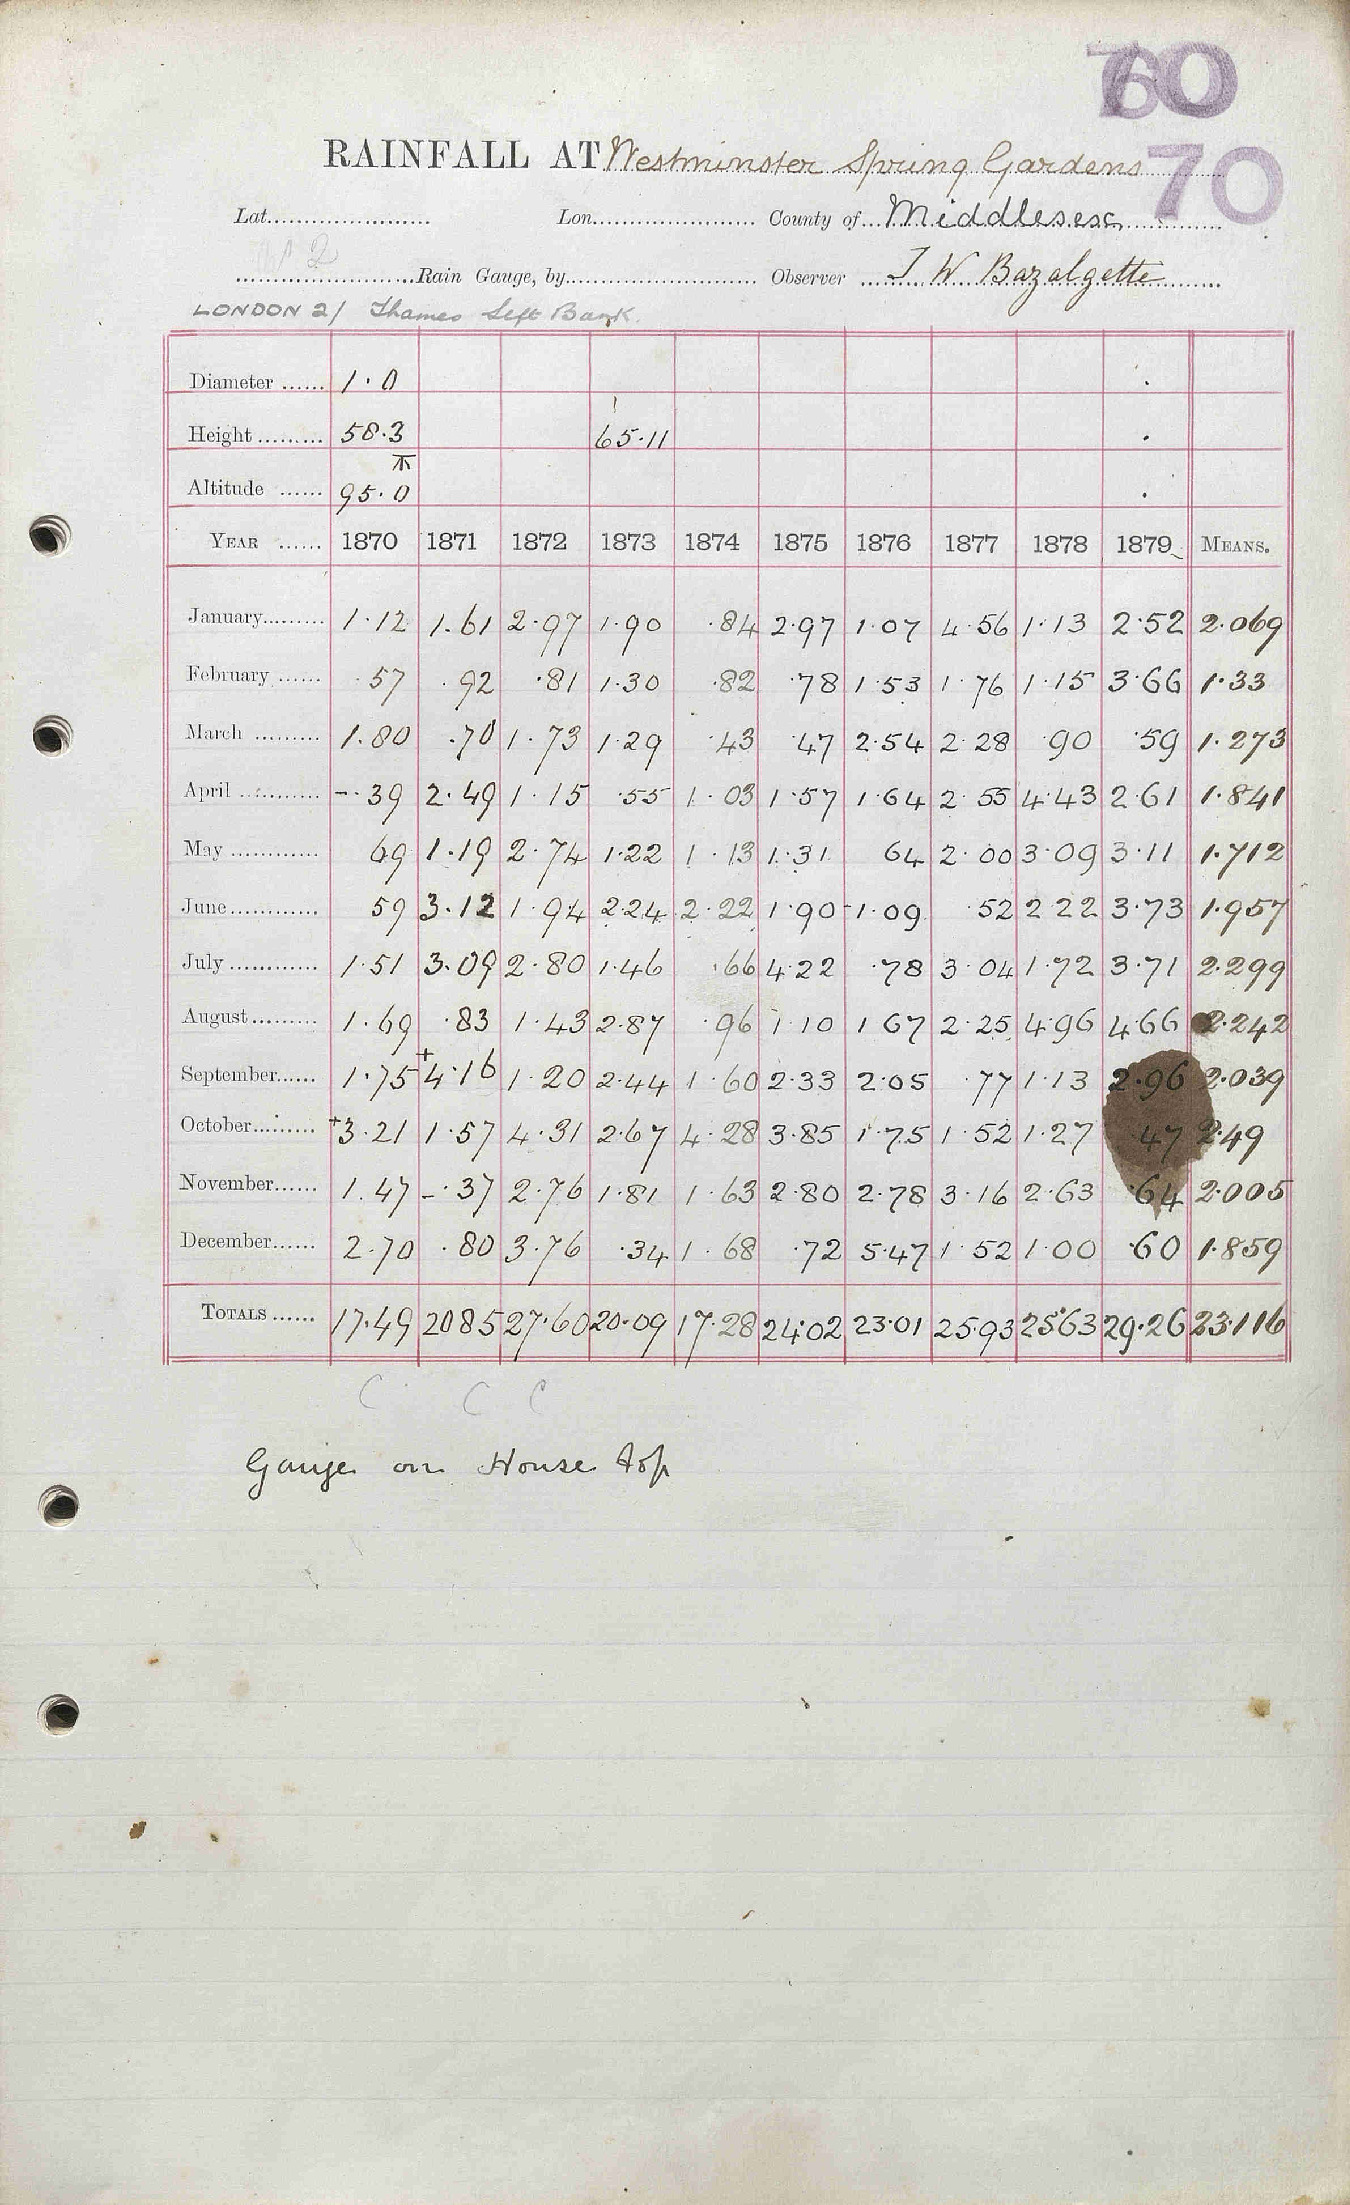 70
60
RAINFALL AT Westminster Spring Gardens 70
Lat. Lon. County of Middlesex
2
Rain Gauge, by Observer J W Bazalgette
LONDON 2/ Thames Left Bank.
Diameter 1.0
Height 58.3 65.11
Altitude 95.0
YEAR 1870 1871 1872 1873 1874 1875 1876 1877 1878 1879 MEANS.
January 1.12 1.61 2.97 1.90 .84 2.97 1.07 4.56 1.13 2.52 2.069
February .57 .92 .81 1.30 .82 .78 1.53 1.76 1.15 3.66 1.33
March 1.80 .70 1.73 1.29 .43 .47 2.54 2.28 .90 .59 1.273
April -.39 2.49 1.15 .55 1.03 1.57 1.64 2.55 4.43 2.61 1.841
May 69 1.19 2.74 1.22 1.13 1.31 64 2.00 3.09 3.11 1.712
June 59 3.12 1.94 2.24 2.22 1.90 1.09 .52 2.22 3.73 1.957
July 1.51 3.09 2.80 1.46 .66 4.22 .78 3.04 1.72 3.71 2.299
August 1.69 .83 1.43 2.87 .96 1.10 1.67 2.25 4.96 4.66 2.242
September 1.75 +4.16 1.20 2.44 1.60 2.33 2.05 .77 1.13 2.96 2.039
October +3.21 1.57 4.31 2.67 4.28 3.85 1.75 1.52 1.27 47 2.49
November 1.47 -.37 2.76 1.81 1.63 2.80 2.78 3.16 2.63 .64 2.005
December 2.70 .80 3.76 .34 1.68 .72 5.47 1.52 1.00 .60 1.859
TOTALS 17.49 2085 27.60 20.09 17.28 24.02 23.01 25.93 25.63 29.26 23.116
C C C
Gauge on House top